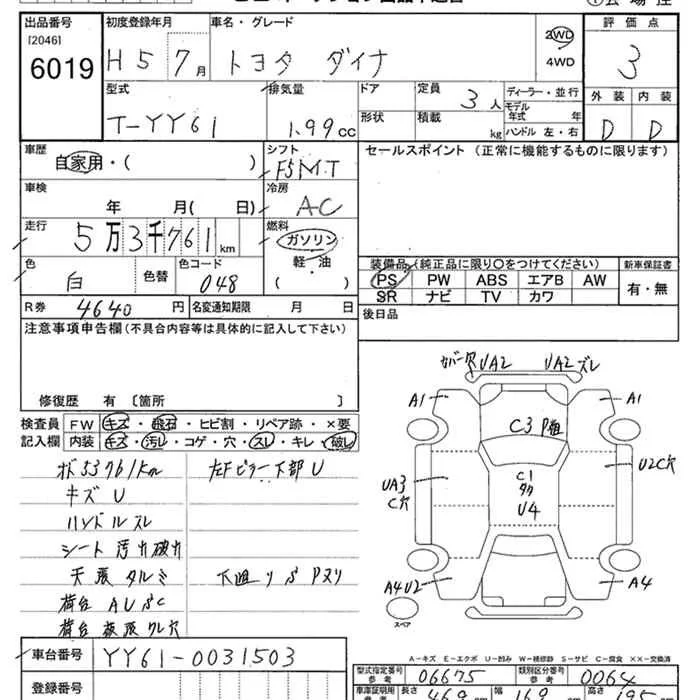 出品番号 初度登録年月 車名・グレード 評価点
[2046]
6019
H5 7月 トヨタ ダイナ 2WD 4WD 3
型式 排気量 ドア 定員 ディーラー・並行 外装 内装
T-YY61 1.99cc 3人 モデル年式 年
形状 積載 kg ハンドル 左・右 D D
車歴 シフト セールスポイント (正常に機能するものに限ります)
自家用・( ) F5MT
車検 冷房
年 月( 日) AC
走行 燃料
5万3千761km ガソリン
軽・油
( )
色 色替 色コード
白 048
装備品 (純正品に限り○をつけてください) 新車保証書
PS PW ABS エアB AW 有・無
SR ナビ TV カワ
R券 4640円 名変通知期限 月 日
後日品
注意事項申告欄(不具合内容等は具体的に記入して下さい)
修復歴 有 〔箇所 〕
検査員 FW キズ・飛石・ヒビ割・リペア跡・×要
記入欄 内装 キズ・汚レ・コゲ・穴・スレ・キレ・破レ
53761km 左Fピラー下部U
キズ U
ハンドルスレ
シート 汚れ破れ
天張タルミ
荷台 AUSC
荷台
カバー欠 UA2 UA2 ズレ
A1 A1
C3
UA3 C穴
C1
U4
U2C穴
A4U2 A4
スペア
A-キズ E-エクボ U-凹み W-補修跡 S-サビ C-腐食 XX-交換済
車台番号 YY61-0031503
登録番号
型式指定番号 06675 類別区分番号 0064
参考
車庫証明用 長さ 469cm 幅 169cm 高さ 195cm